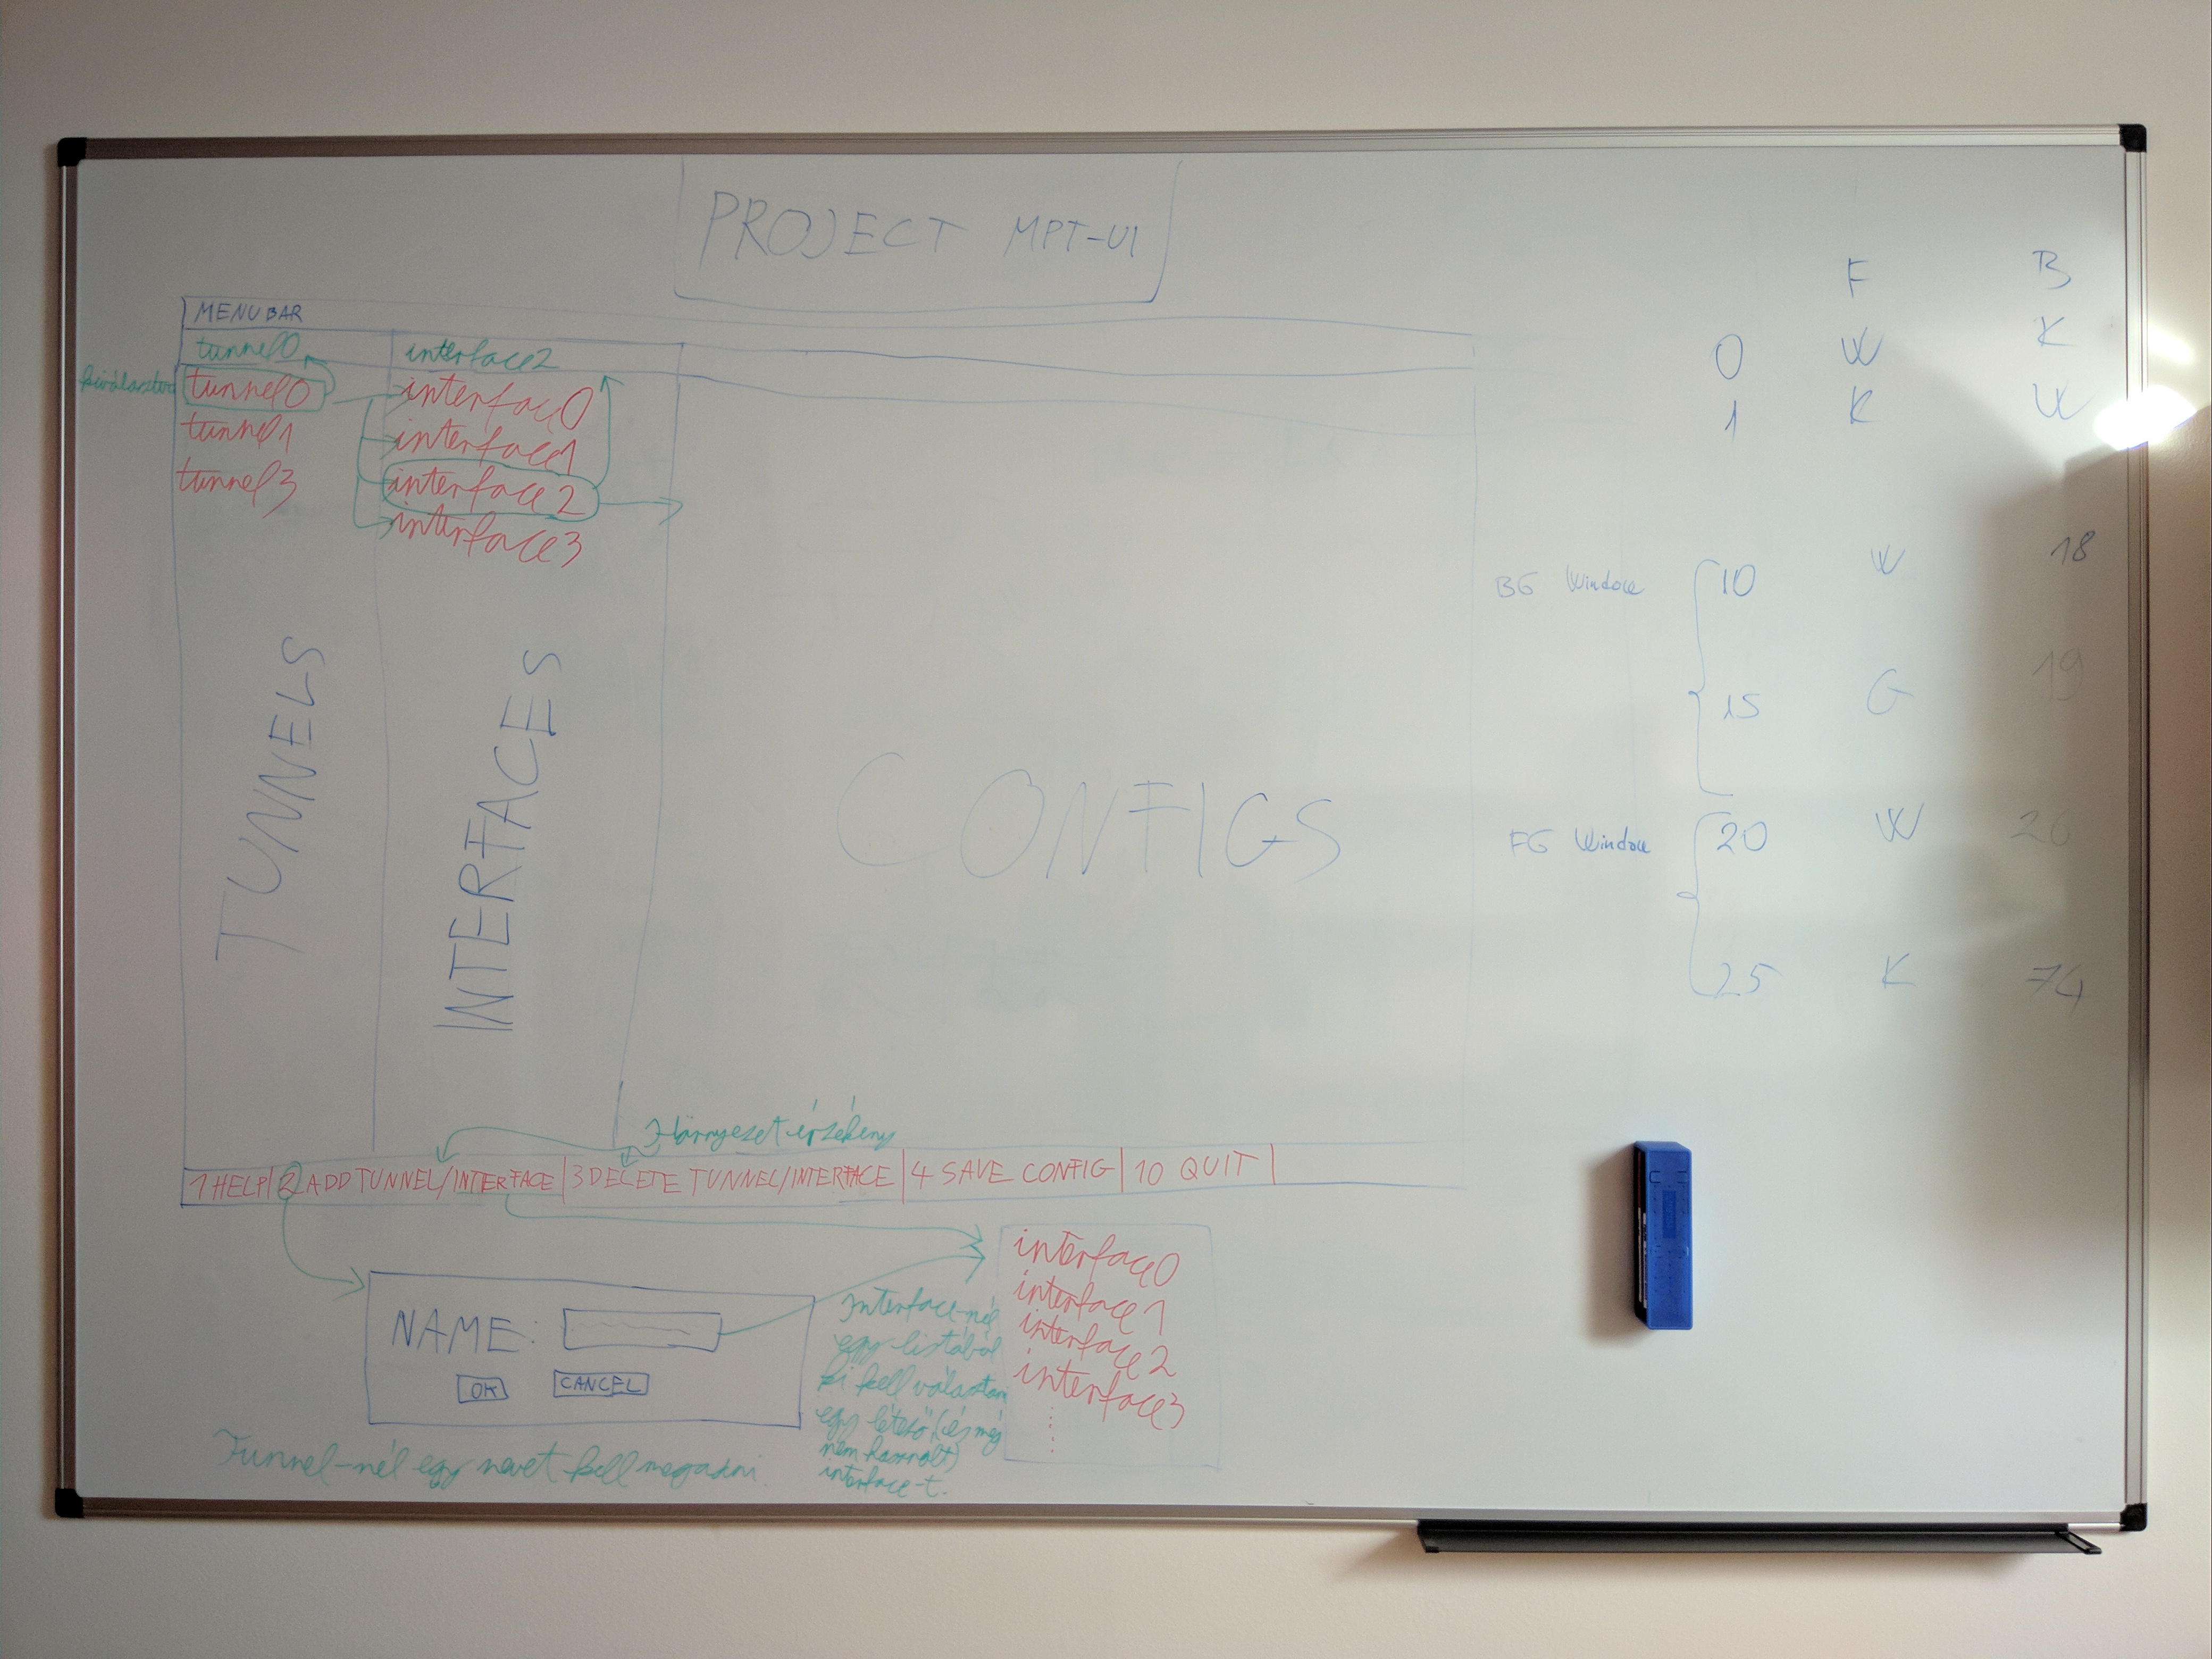 PROJECT MPT-UI
MENUBAR
tunnel0 interface2
kiválasztva tunnel0 interface0
tunnel1 interface1
tunnel3 interface2
interface3
TUNNELS
INTERFACES
CONFIGS
Környezet érzékeny
1 HELP 2 ADD TUNNEL/INTERFACE 3 DELETE TUNNEL/INTERFACE 4 SAVE CONFIG 10 QUIT
NAME:
OK CANCEL
Tunnel-nél egy nevet kell megadni.
Interface-nél
egy listából
ki kell választani
egy létező (és még
nem használt)
interface-t.
interface0
interface1
interface2
interface3
F B
0 W K
1 K W
BG Window 10 W 18
15 G 19
FG Window 20 W 26
25 K 74